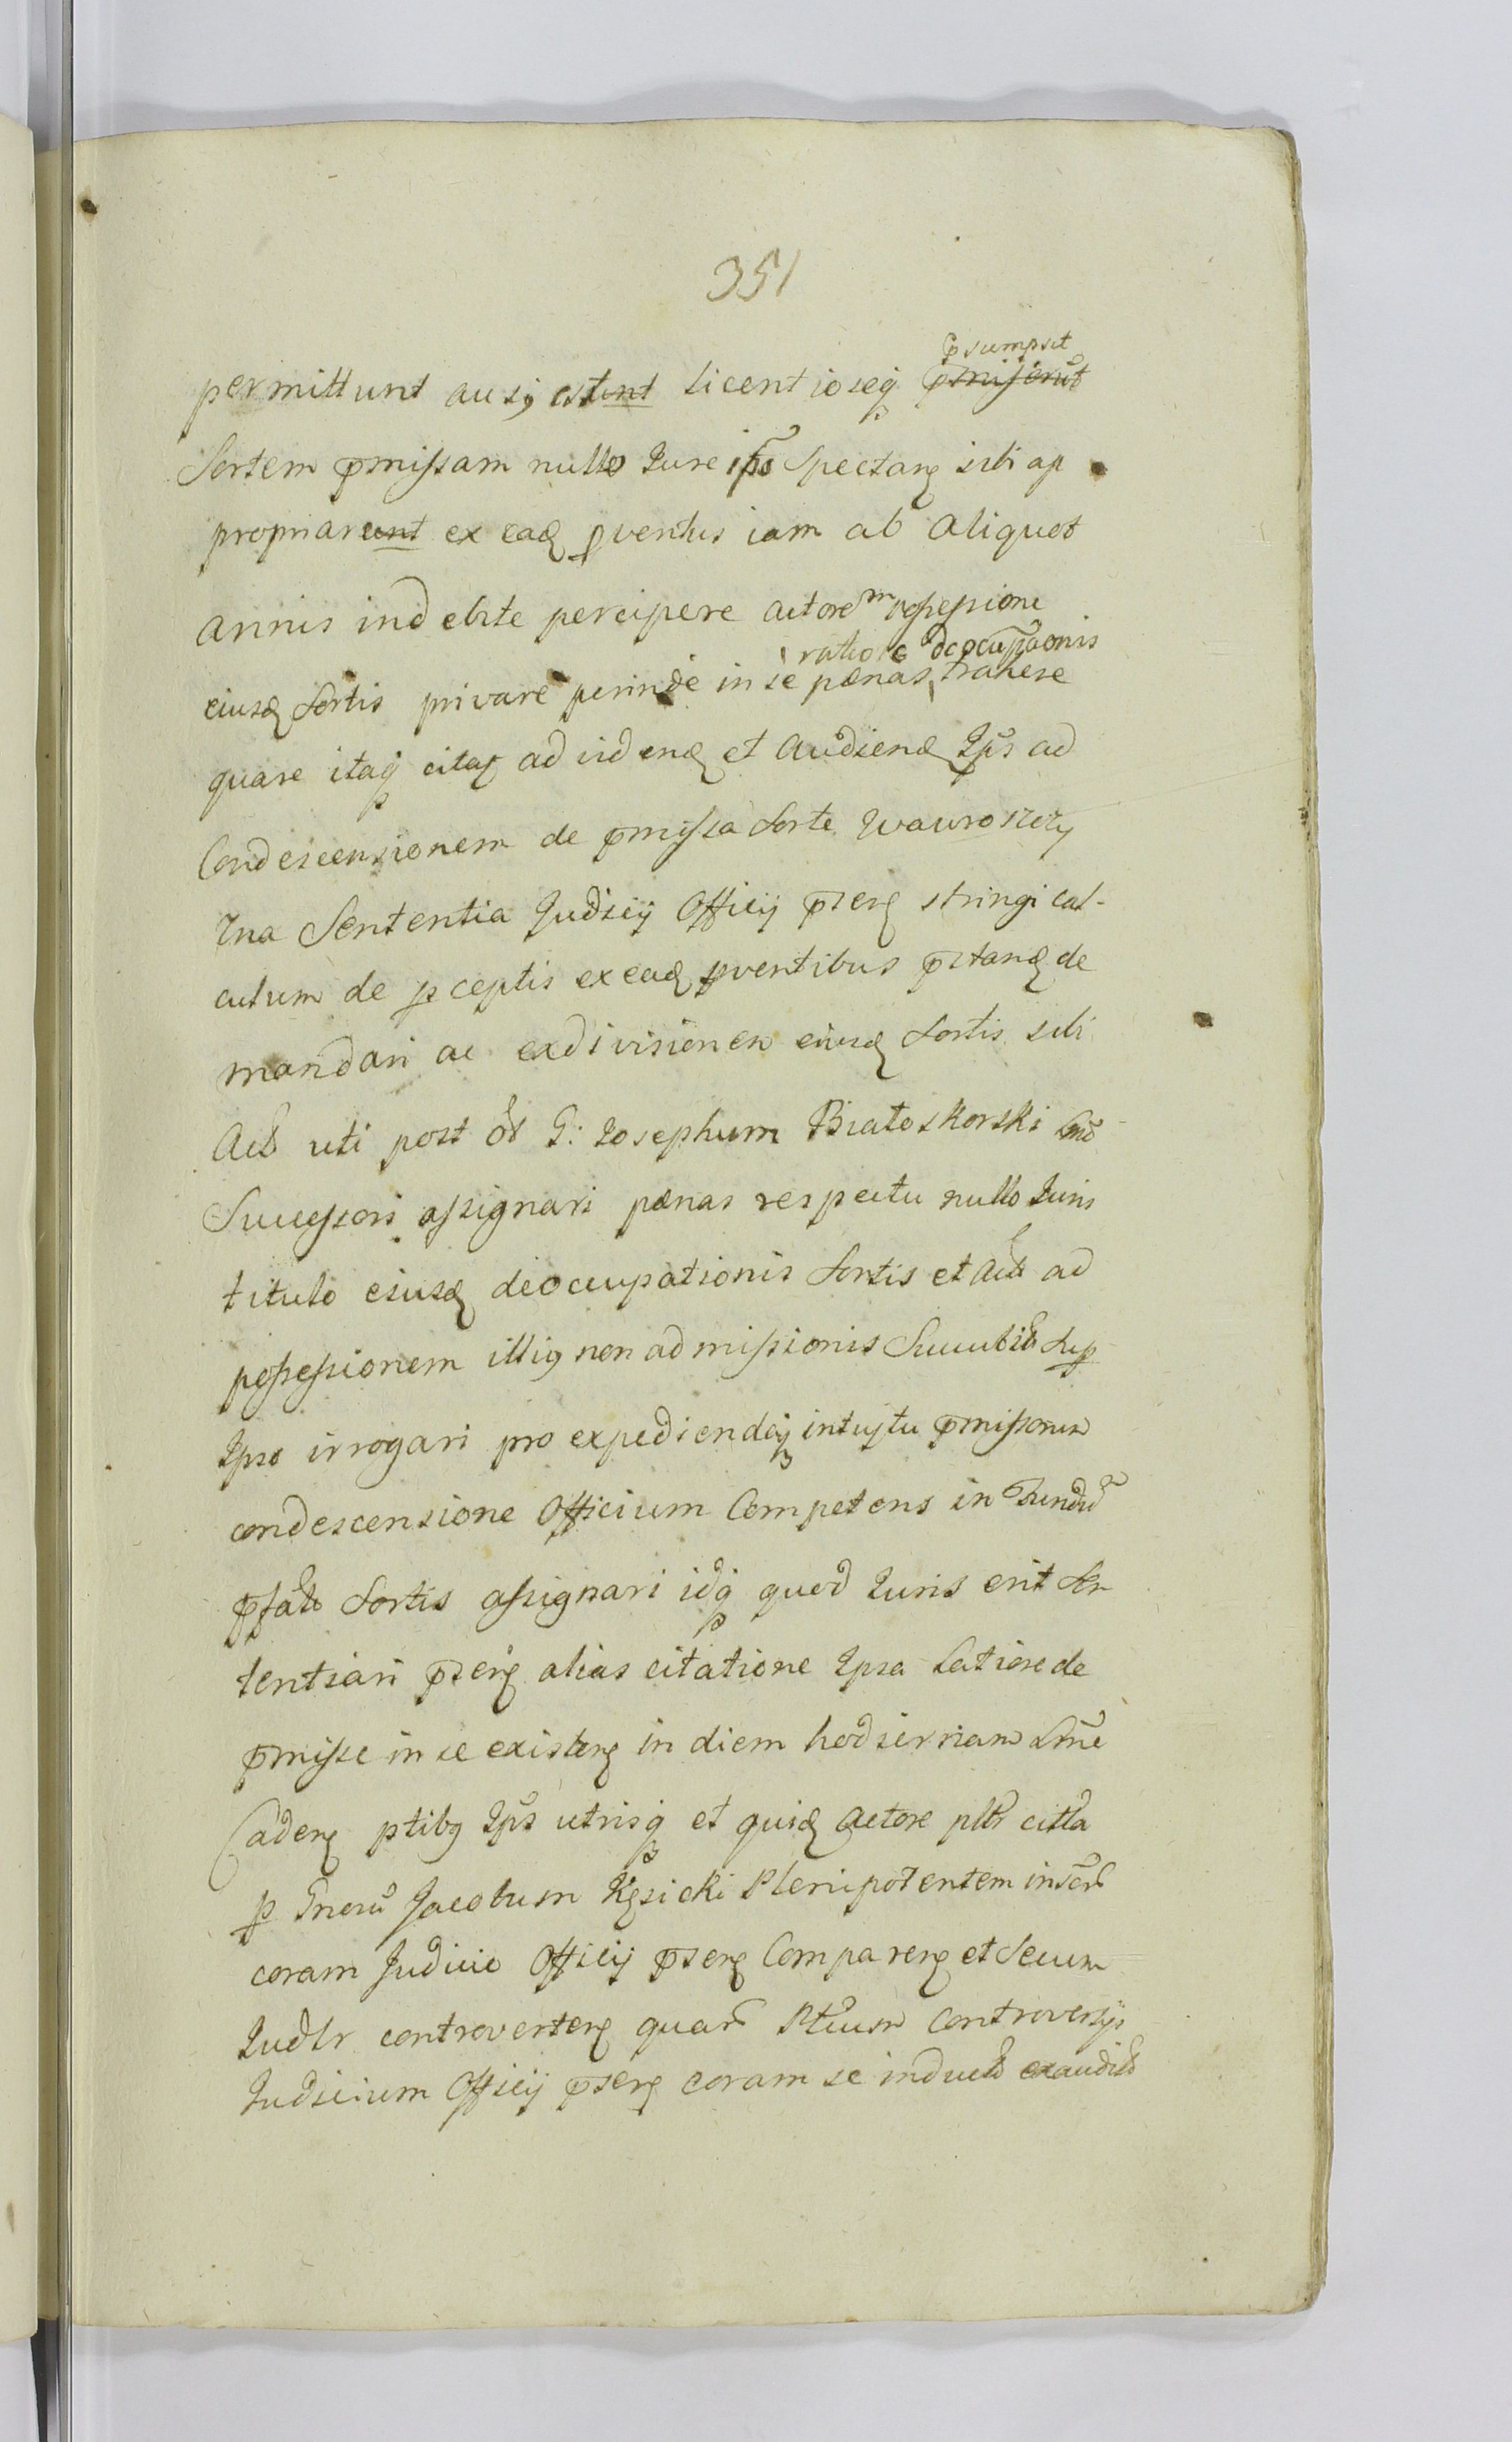 351
permittunt ausi, estunt licentioseq p̄sumpsit p̄miserūt
Sortem p̄missam nullo Jure ip̄s Spectan̄ sibi ap
propriarunt ex ead̄ pventus iam ab aliquot
annis indebite percipere actorem possessione
eiusd̄ Sortis privare perinde in se pœnas ratione deocup̄aonis trahere
quare itaq citat̄ ad vidend̄ et audiend̄ Ip̄s ad
Condescensionem de p̄missa Sorte Wawroszczy
zna Sententia Judicij Officij p̄sen̄ stringi cal-
culum de pceptis ex ead̄ pventibus p̄stand̄ de
mandari ac exdivisionem eiusd̄ Sortis sibi
Act̄ uti post ol̄ G: Josephum Białoskorski
Successori assignari pœnas respectu nullo Juris
titulo eiusd̄ deoccupationis Sortis et Act̄ ad
possessionem illiq non admissionis Succubit̄ sup
Ipso irrogari pro expediendaq intuitu p̄missorum
condescensione Officium Competens in Fundū
p̄fat̄ Sortis assignari idq quod Juris erit Sen
tentiari p̄sen̄ alias citatione Ipsa Latiore de
p̄misse in se existen̄ in diem hodiernam
Caden̄ ptibq Ip̄s utrisq et quid̄ actore pltr citt̄a
p Gnorū Jacobum Kęsicki Plenipotentem
coram Judicio Officij p̄sen̄ Comparen̄ et Secum
Judlr controverten̄ quar̄ Ptium Controversijs
Judicium Officij p̄sen̄ coram se induct̄ exaudit̄